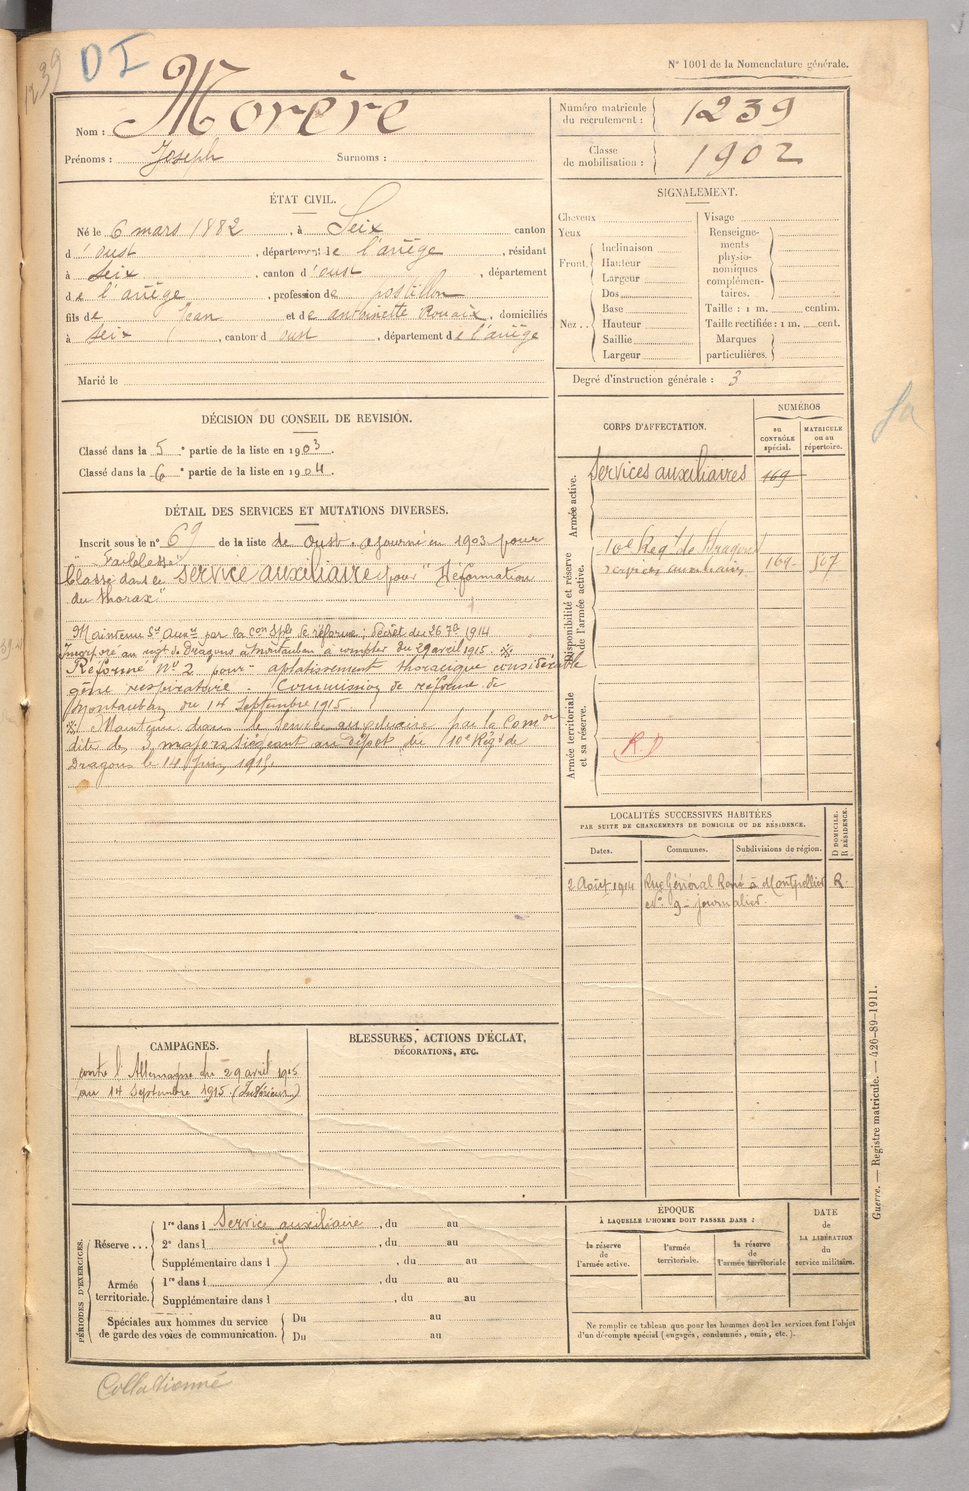 1239
D I
N° 1001 de la Nomenclature générale.
Nom : Morère
Prénoms : Joseph Surnoms :
Numéro matricule du recrutement : 1239
Classe de mobilisation : 1902
ÉTAT CIVIL.
Né le 6 mars 1882, à Seix canton
d'oust, département de l'ariège, résidant
à Seix, canton d'oust, département
de l'ariège, profession de postillon
fils de Jean et de antoinette Rouaix, domiciliés
à Seix, canton d oust, département de l'ariège
Marié le
SIGNALEMENT.
Cheveux
Yeux
Front. Inclinaison
Hauteur
Largeur
Nez .. Dos
Base
Hauteur
Saillie
Largeur
Visage
Renseigne-
ments
physio-
nomiques
complémen-
taires.
Taille : 1 m. centim.
Taille rectifiée : 1 m. cent.
Marques
particulières.
Degré d'instruction générale : 3
DÉCISION DU CONSEIL DE REVISION.
Classé dans la 5e partie de la liste en 1903.
Classé dans la 6e partie de la liste en 1904.
DÉTAIL DES SERVICES ET MUTATIONS DIVERSES.
Inscrit sous le n° 69 de la liste de Oust. ajourné en 1903 pour
"Faiblesse"
Classé dans le service auxiliaire pour "Déformation
du thorax"
Maintenu Sce Auxre par la Con Sple de réforme ; décret du 26 7bre 1914
Incorporé au rgt de Dragons à Montauban à compter du 29 avril 1915. ※
Réformé N° 2 pour aplatissement thoracique considérable
gêne respiratoire. Commission de réforme de
Montauban du 14 Septembre 1915
※ Maintenu dans le Service auxiliaire par la Comon
dite des 3 majors siégeant au dépot du 10e Régt de
Dragons le 14 Juin 1915.
CORPS D'AFFECTATION.
NUMÉROS
au CONTRÔLE spécial.
MATRICULE ou au répertoire.
Armée active.
Services auxiliaires 169
Disponibilité et réserve de l'armée active.
10e Regt de Dragons
services auxiliaires 169 507
Armée territoriale et sa réserve.
R.D
LOCALITÉS SUCCESSIVES HABITÉES
PAR SUITE DE CHANGEMENTS DE DOMICILE OU DE RÉSIDENCE.
Dates. Communes. Subdivisions de région. D DOMICILE. R RÉSIDENCE.
2 Août 1914 Rue Général René à Montpellier R.
n° 9 - journalier.
CAMPAGNES.
contre l'Allemagne du 29 avril 1915
au 14 Septembre 1915 (Intérieur)
BLESSURES, ACTIONS D'ÉCLAT,
DÉCORATIONS, ETC.
PÉRIODES D'EXERCICES.
Réserve ... 1re dans l Service auxiliaire, du au
2e dans l id, du au
Supplémentaire dans l, du au
Armée territoriale. 1re dans l, du au
Supplémentaire dans l, du au
Spéciales aux hommes du service
de garde des voies de communication. Du au
Du au
ÉPOQUE
À LAQUELLE L'HOMME DOIT PASSER DANS :
la réserve de l'armée active.
l'armée territoriale.
la réserve de l'armée territoriale
DATE
de
LA LIBÉRATION
du
service militaire.
Ne remplir ce tableau que pour les hommes dont les services font l'objet
d'un décompte spécial (engagés, condamnés, omis, etc.).
Guerre. — Registre matricule. — 426-89-1911.
Collationné